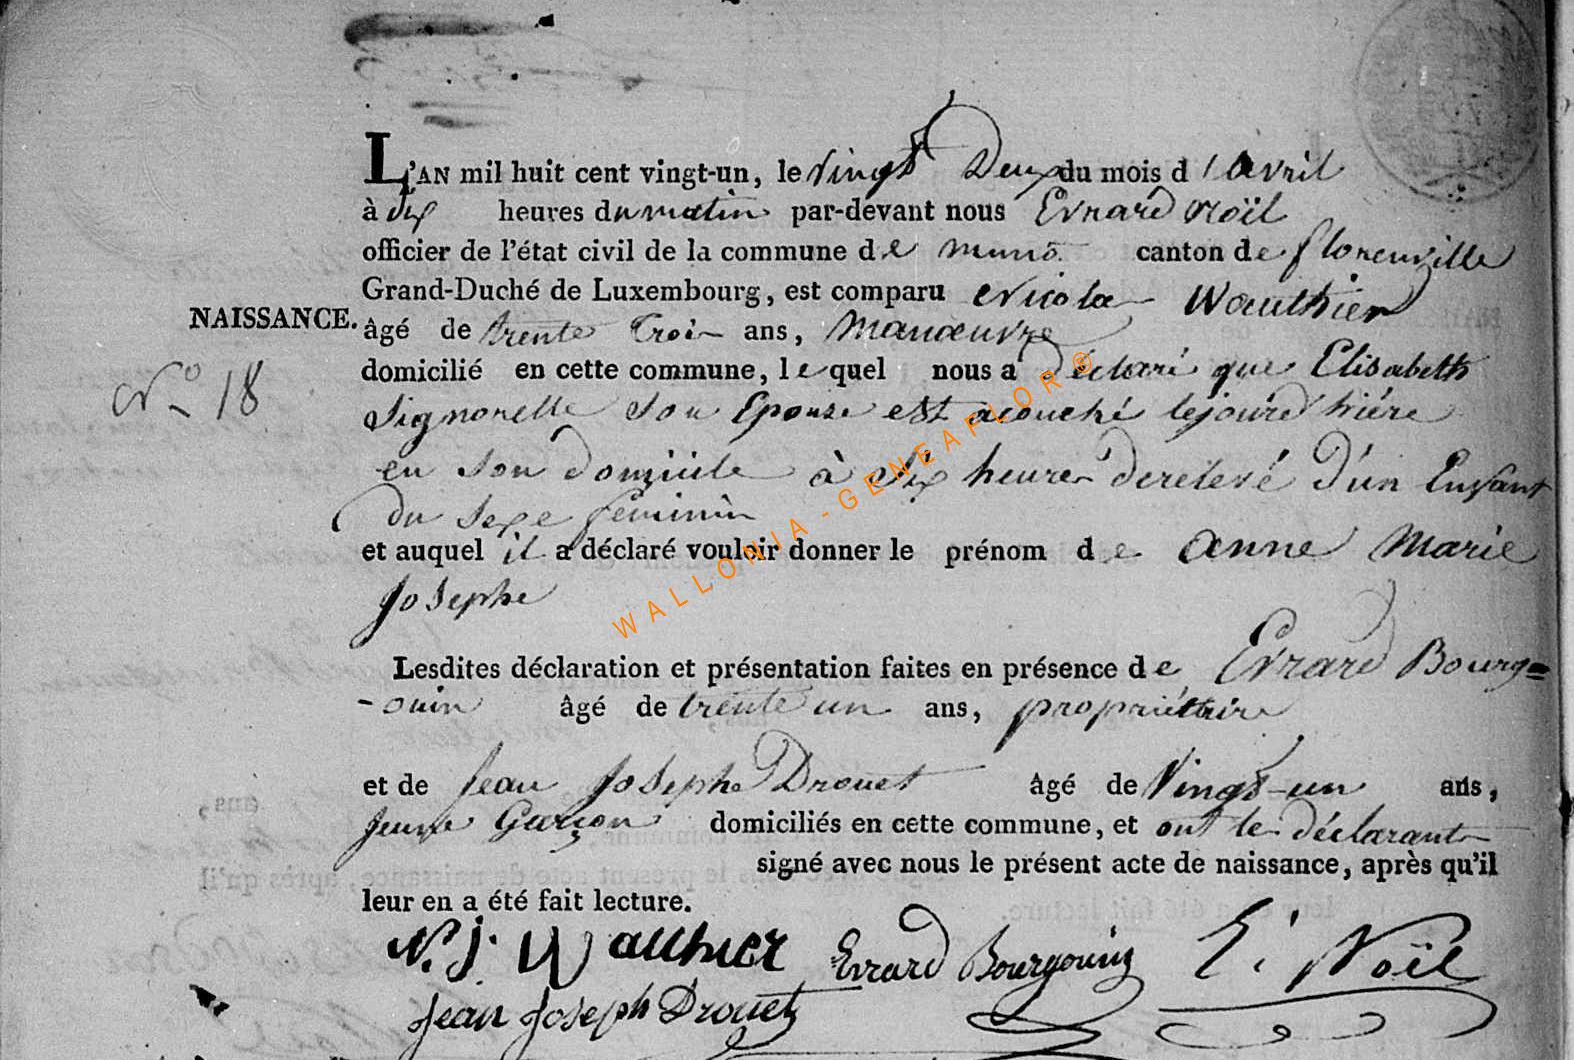 L'AN mil huit cent vingt-un, le vingt Deux du mois d'avril
à dix heures du matin par-devant nous Evrard Noël
officier de l'état civil de la commune de muno canton de florenville
Grand-Duché de Luxembourg, est comparu Nicola Wauthier
NAISSANCE. âgé de trente Trois ans, Manœuvre
domicilié en cette commune, lequel nous a déclaré que Elisabeth
N° 18 Signorelle Son Epouse est acouché lejourd'hiére
en son domicile à Six heures derelevé d'un Enfant
du sexe feminin
et auquel il a déclaré vouloir donner le prénom de Anne Marie
Josephe
Lesdites déclaration et présentation faites en présence de Evrard Bourg=
-ouin âgé de trente un ans, propriéttaire
et de Jean Josephe Drouet âgé de Vingt-un ans,
jeune Garçon domiciliés en cette commune, et ont le déclarant
signé avec nous le présent acte de naissance, après qu'il
leur en a été fait lecture.
N. J. Wauthier Evrard Bourgouin E. Noël
Jean Joseph Drouet
WALLONIA-GENEAFLOR®